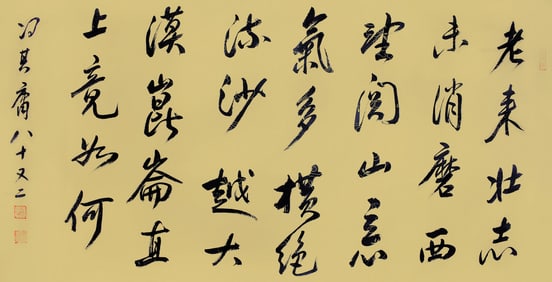 老来壮志
未消磨西
望阳关山意
氣多横绝
流沙越大
漠崑崙直
上竟如何
冯其庸八十又二